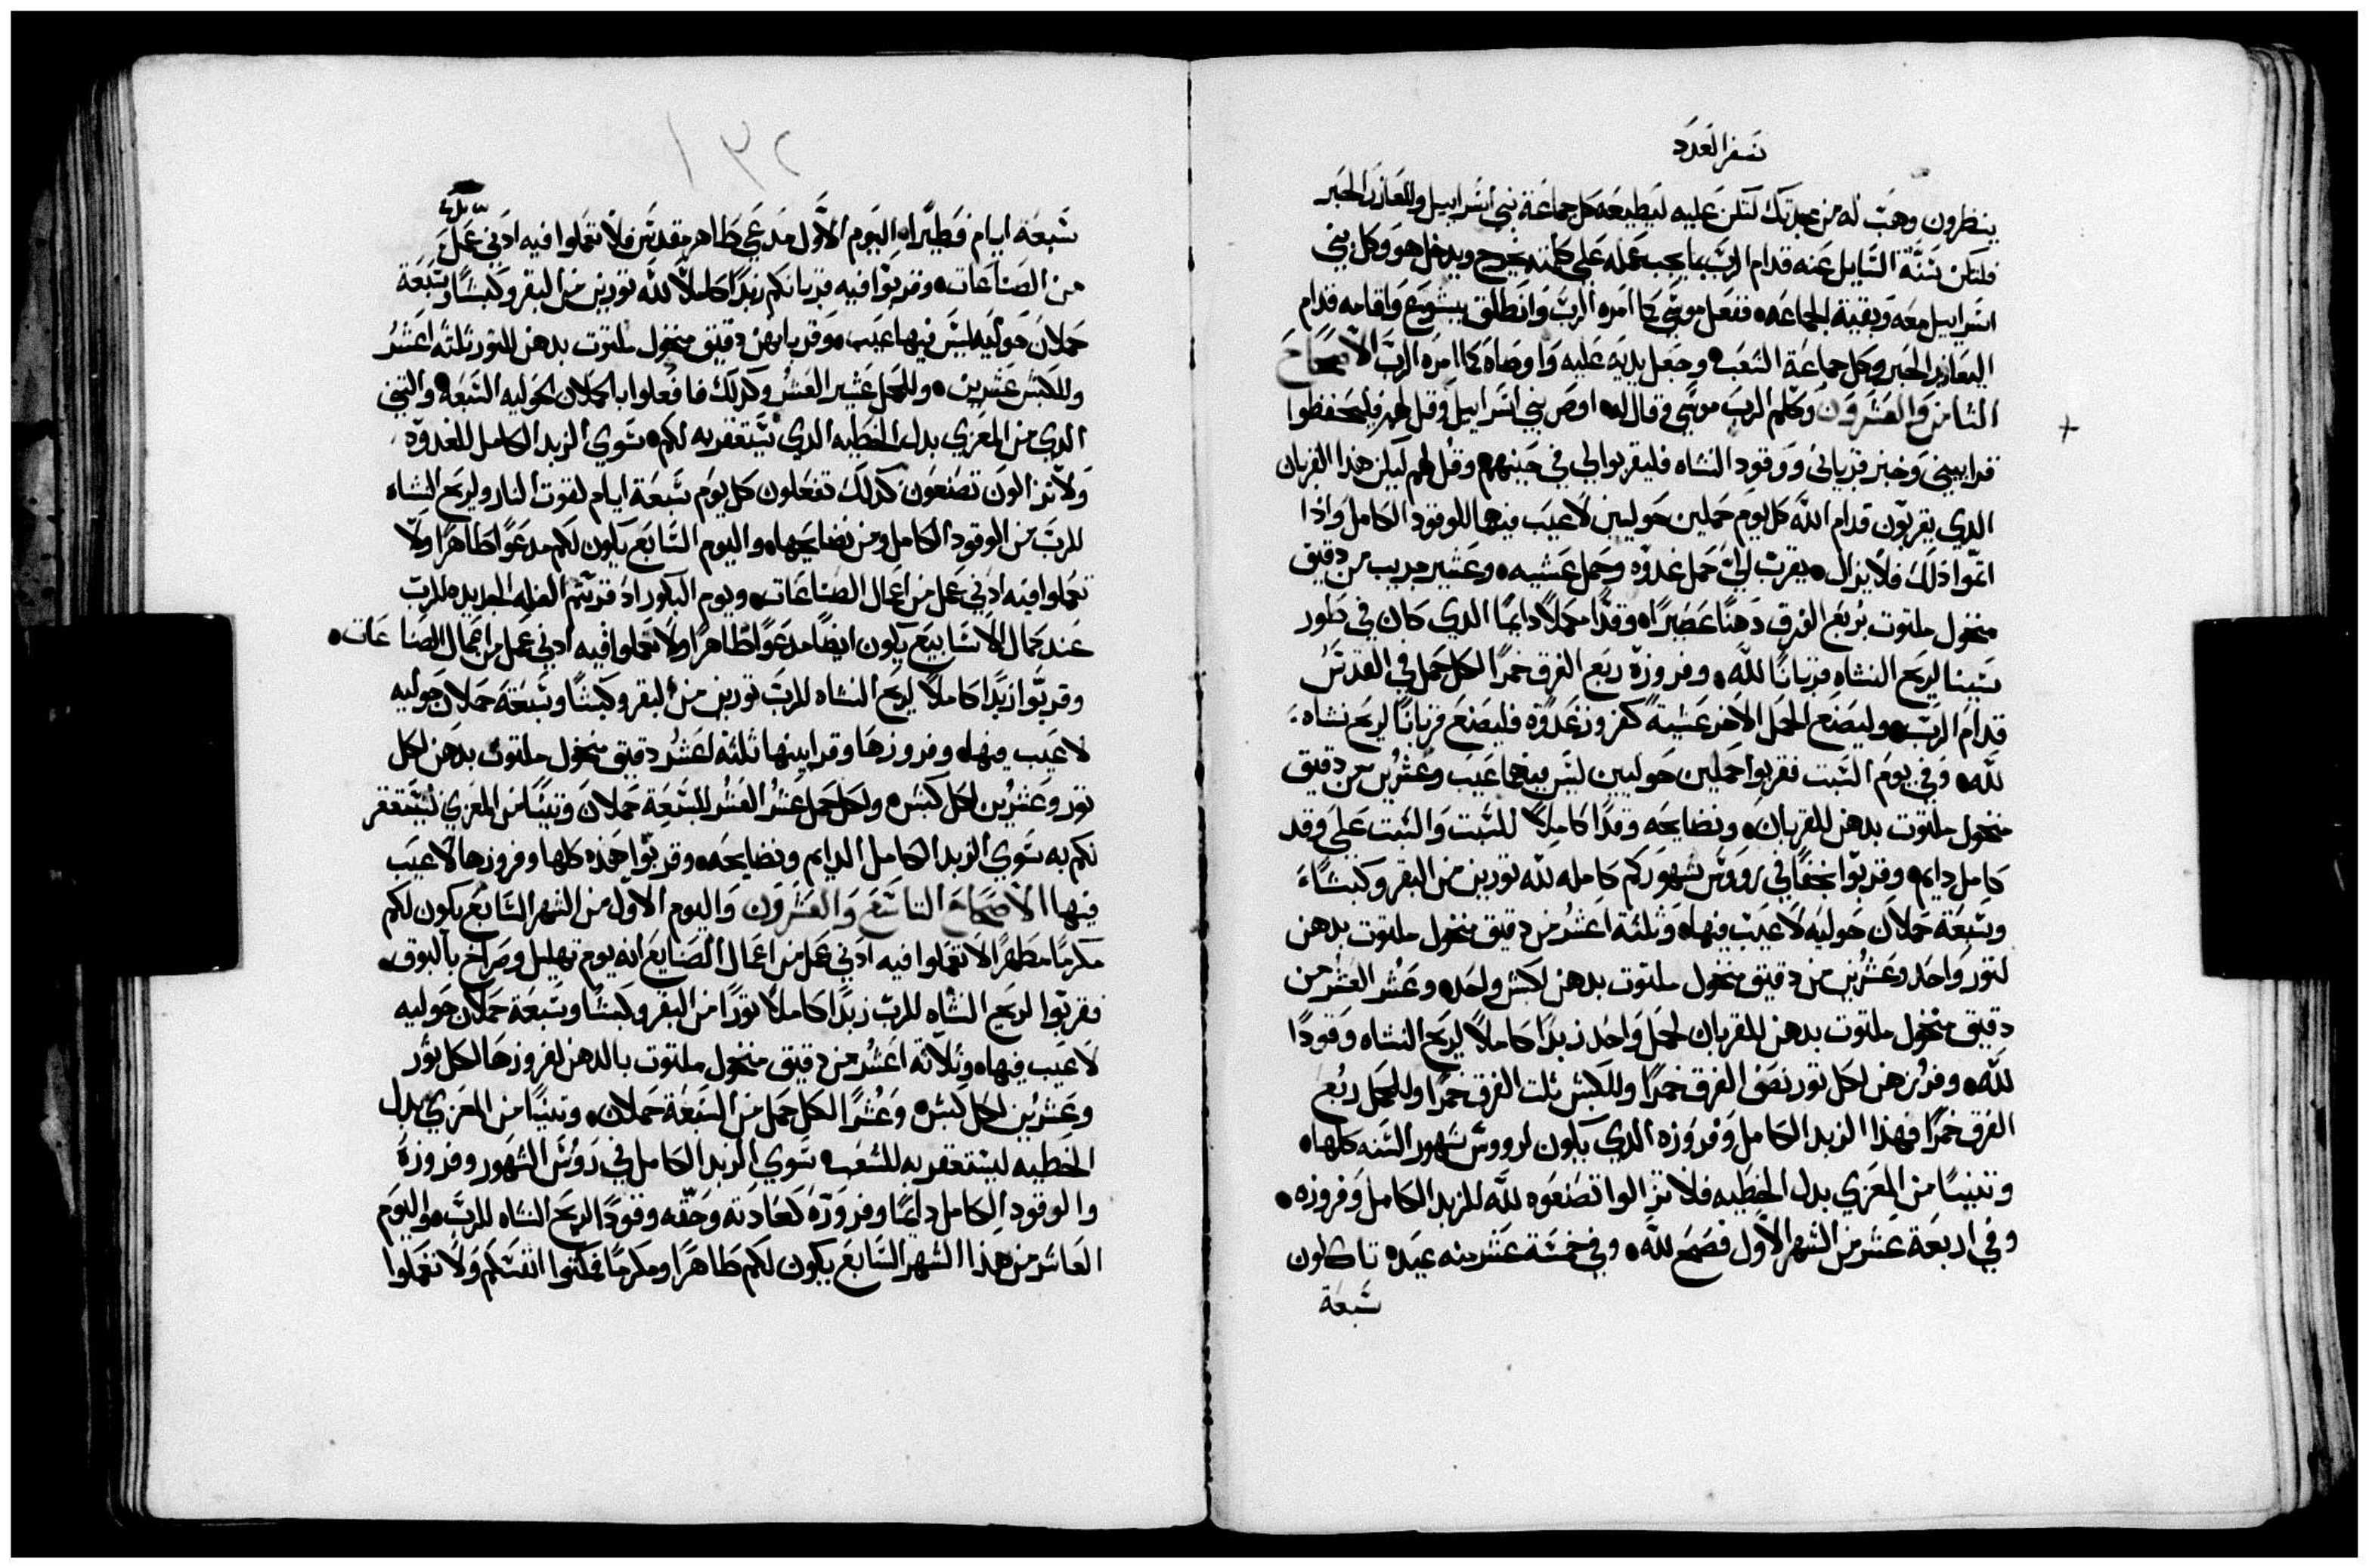 سفر العدد
ينظرون وهب له من مجدك لتكن عليه ليطيعه كل جماعة بني اسراييل وللعازر الحبر
فلتكن سنة السايل عنه قدام الرب بما يجب عمله على كلمته يخرج ويدخل هو وكل بني
اسراييل معه وبقية الجماعه ففعل موسى كما امره الرب وانطلق بيشوع واقامه قدام
اليعازر الحبر وكل جماعة الشعب وجعل يديه عليه واوصاه كما امره الرب الاصحاح
الثامن والعشرون وكلم الرب موسى وقال له اوص بني اسراييل وقل لهم فليحفظوا
قراييني وخبز قرباني ووقود النشاه فليقربوا لي في حينهم وقل لهم ليكن هذا القربان
الدي يقربون قدام الله كل يوم حملين حوليين لا عيب فيهما للوقود الكامل واذا
اتموا ذلك فلا يزال يقرب لي حمل غدوه وحمل عشيه وعشير جريب من دقيق
منخول ملتوت بربع الفرق دهنا عصيرا وقدا مكملا دايما الدي كان في طور
سينا لريح النشاه قربانا لله وفروزه ربع الفرق خمرا لكل حمل في القدس
قدام الرب وليصنع الحمل الاخر عشية كفروز غدوة فليصنع قربانا لريح نشاه
لله وفي يوم السبت فقربوا حملين حوليين ليس فيهما عيب وعشرين من دقيق
منخول ملتوت بدهن للقربان ونضايحه وقدا كاملا للسبت والسبت على وقد
كامل دايم وقربوا نحفا في رووس شهوركم كامله لله ثورين من البقر وكبشا
وسبعة حملان حوليه لا عيب فيها وثلثة اعشر من دقيق منخول ملتوت بدهن
لثور واحد وعشرين من دقيق منخول ملتوت بدهن لكبش واحد وعشر العشر من
دقيق منخول ملتوت بدهن للقربان لحمل واحد زبدا كاملا لريح النشاه وقودا
لله وفرزهن لكل ثور نصف الفرق خمرا وللكبش ثلث الفرق خمرا وللحمل ربع
الفرق خمرا فهذا الزبد الكامل وفروزه الدي يكون لرووس شهور السنه كلها
وتنيسا من المعزي بدل الخطيه فلا تزالوا تصنعوه لله للزبد الكامل وفروزه
وفي اربعة عشر من الشهر الاول فصح لله وفي خمسة عشر منه عيده تاكلون
سبعة
١٣٢
سبعة ايام فطيرا اليوم الاول مدعي طاهر مقدس فلا تعملوا فيه ادني عمل
من الصناعات وقربوا فيه قربانكم زبدا كاملا لله ثورين من البقر وكبشا وسبعة
حملان حوليه ليس فيها عيب وقربانهن دقيق منخول ملتوت بدهن للثور ثلثه اعشر
وللكبش عشرين وللحمل عشير العشر وكذلك فافعلوا بالحملان الحوليه السبعه والتيس
الدي من المعزي بدل الخطيه الدي يستغفر به لكم سوي الزبد الكامل للغدوة
ولا تزالون تصنعون كذلك تفعلون كل يوم سبعة ايام لقوت النار ولريح النشاه
للرب من الوقود الكامل ومن نضايحها واليوم السابع يكون لكم مدعوا طاهرا ولا
تعملوا فيه ادني عمل من اعمال الصناعات ويوم البكور اذ قربتم الغله الجديده للرب
عند كمال الاسابيع يكون ايضا مدعوا طاهرا ولا تعملوا فيه ادني عمل من اعمال الصناعات
وقربوا زبدا كاملا لريح النشاه للرب ثورين من البقر وكبشا وسبعة حملان حوليه
لا عيب فيها وفروزها وقرابينها ثلثه اعشر دقيق منخول ملتوت بدهن لكل
ثور وعشرين لكل كبش ولكل حمل عشر العشر للسبعة حملان وتيسا من المعزي ليستغفر
لكم به سوي الزبد الكامل الدايم ونضايحه وقربوا هذه كلها وفروزها لا عيب
فيها الاصحاح التاسع والعشرون واليوم الاول من الشهر السابع يكون لكم
مكرما مطهرا لا تعملوا فيه ادني عمل من اعمال الصنايع انه يوم تهليل وصراخ بالبوق
فقربوا لريح النشاه للرب زبدا كاملا ثورا من البقر وكبشا وسبعة حملان حوليه
لا عيب فيها وثلاثة اعشر من دقيق منخول ملتوت بالدهن لفروزها لكل ثور
وعشرين لكل كبش وعشرا لكل حمل من السبعة حملان وتيسا من المعزي بدل
الخطيه ليستغفر به للشعب سوي الزبد الكامل في روس الشهور وفروزه
والوقود الكامل دايما وفروزه كعادته وحقه وقودا لريح النشاه للرب واليوم
العاشر من هذا الشهر السابع يكون لكم طاهرا ومكرما فمكنوا انفسكم ولا تعملوا